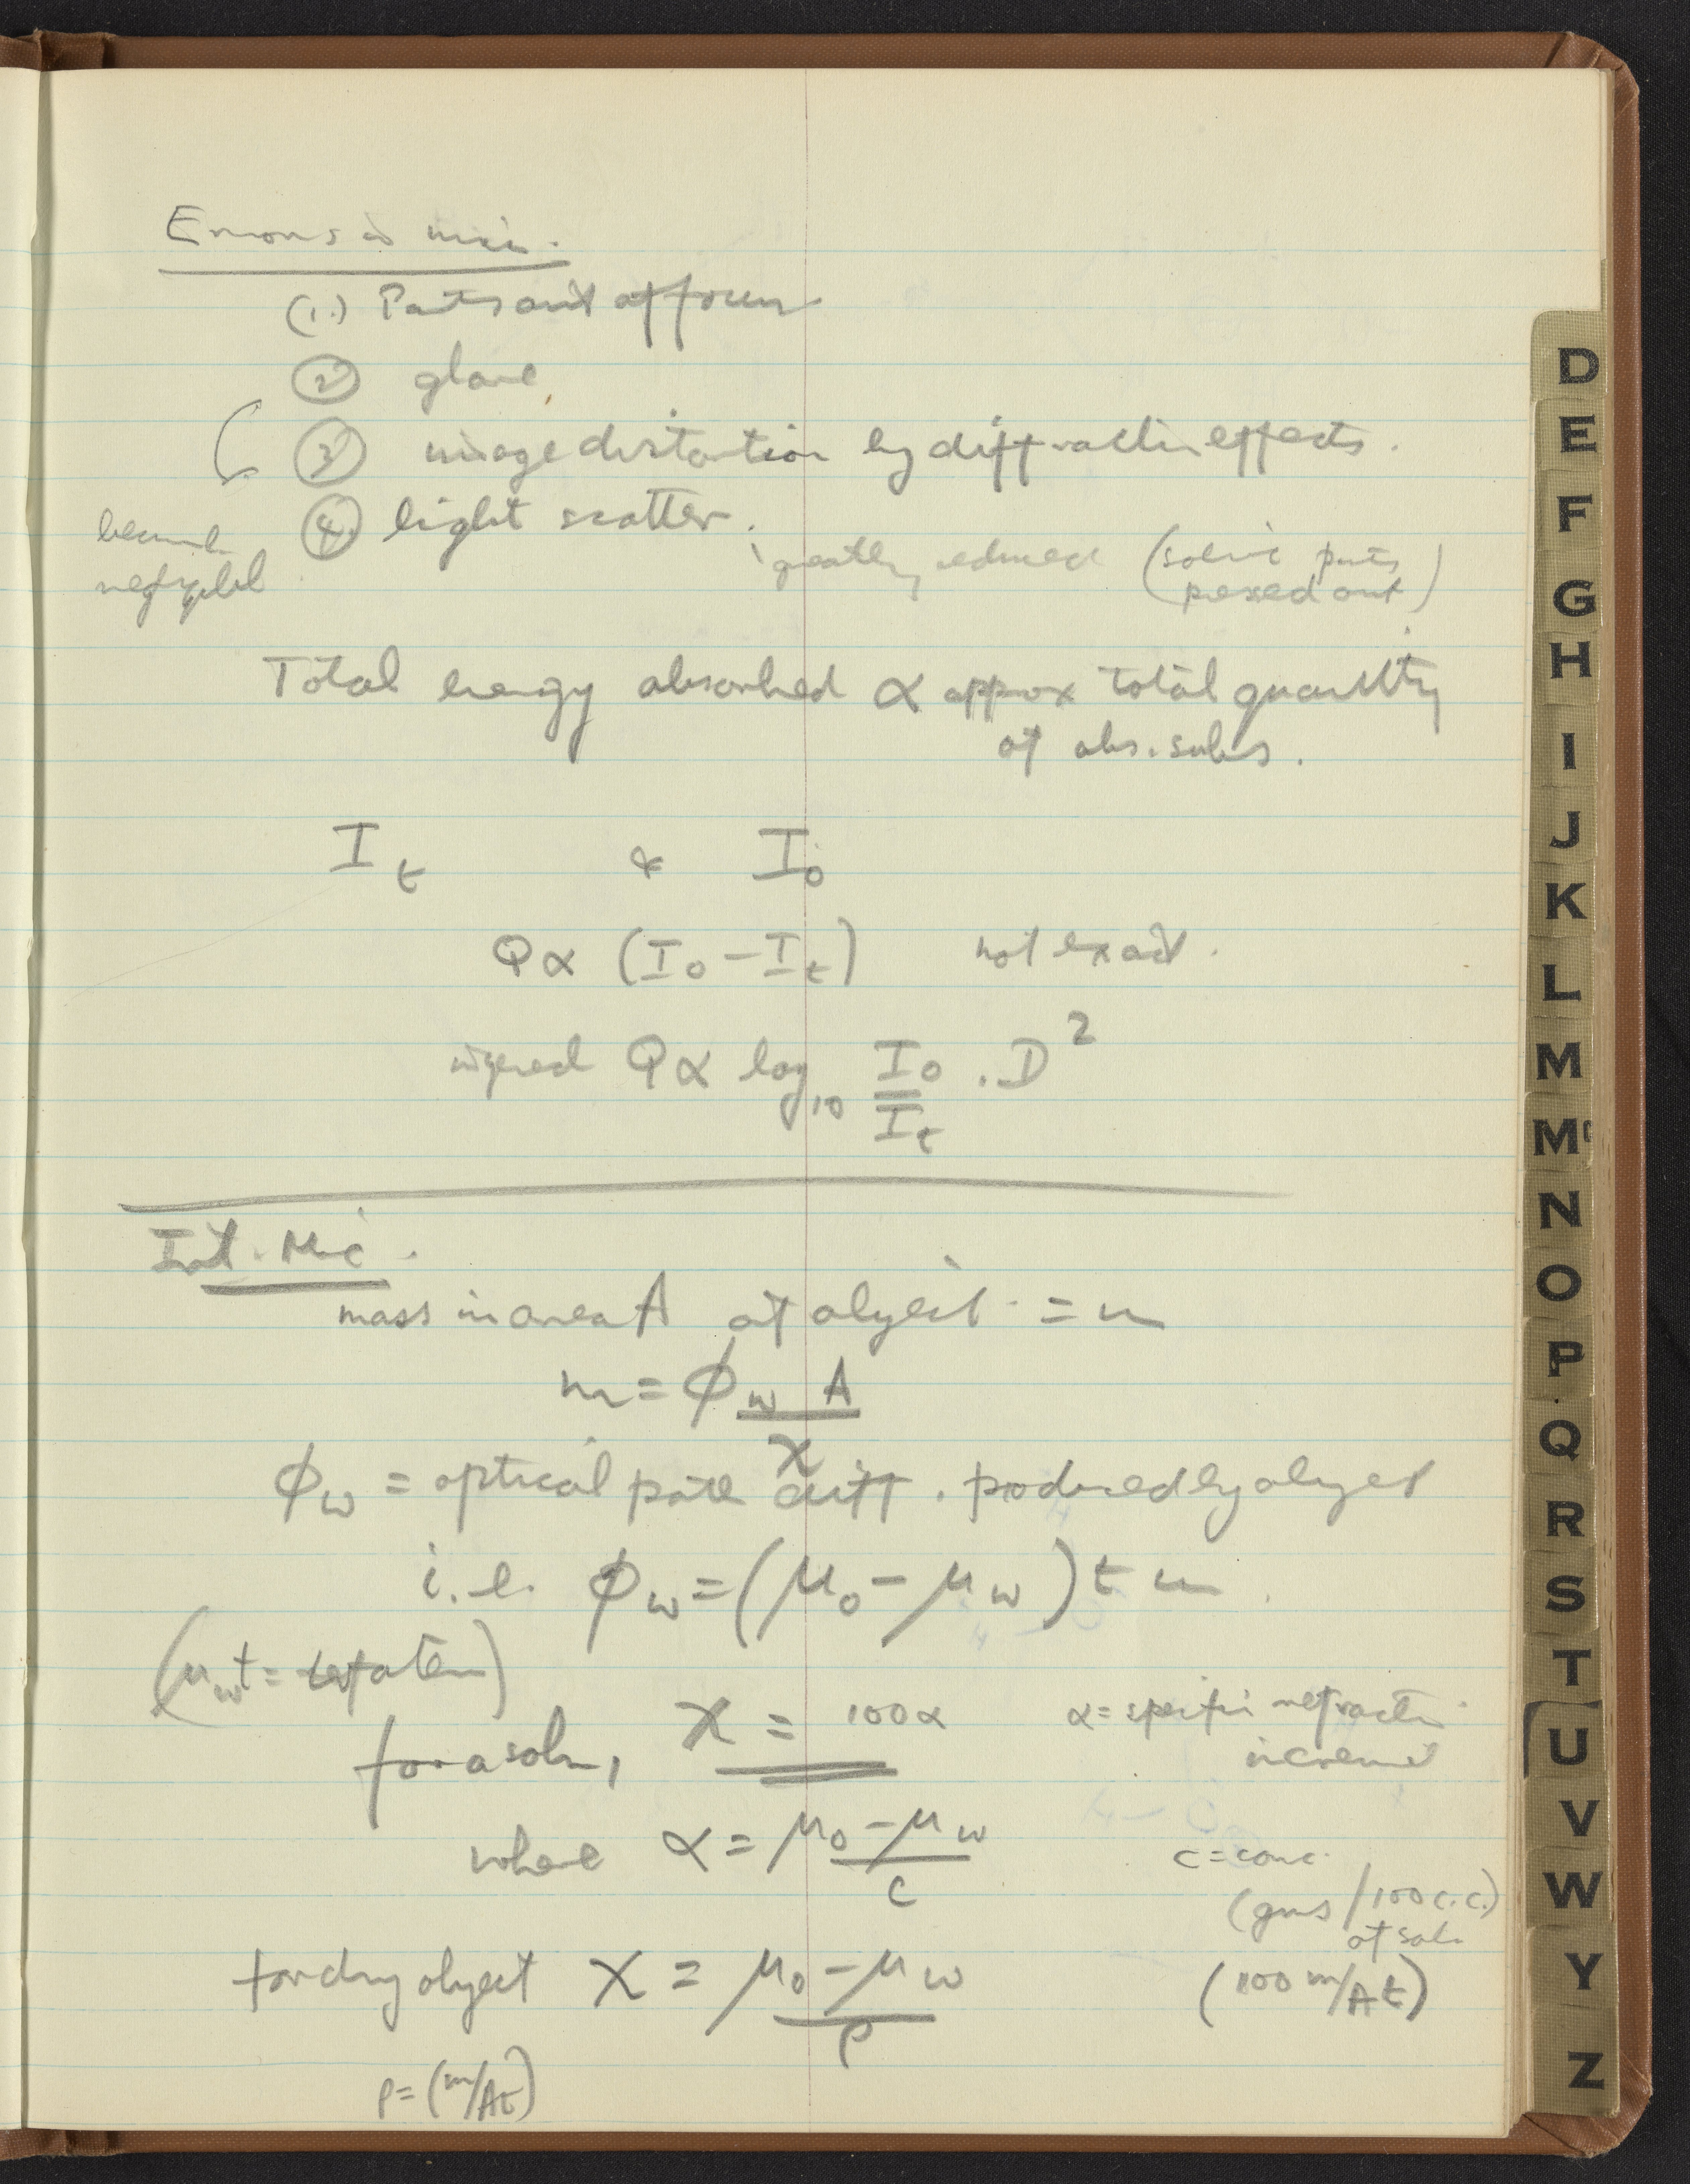 Errors in mic.
(1.) Parts out of focus
② glare
③ image distortion by diffraction effects.
④ light scatter.
become
negligibl
greatly reduced (some parts
pressed out)
Total energy absorbed ∝ approx total quantity
of abs. subs.
I_t & I_o
Q ∝ (I_o − I_t) not exact.
Q ∝ log_10 I_o/I_t . D^2
Int. Mic.
mass in area A of object = m
m = ϕ_w A / χ
ϕ_w = optical path diff. produced by object
i.e. ϕ_w = (μ_o − μ_w) t
(μ_w t =
for a soln, χ = 100α α = specific refractive
increment
where α = μ_o − μ_w / c c = conc.
(gms / 100 c.c.)
of soln
for dry object χ = μ_o − μ_w / ρ (100 m/At)
ρ = (m/At)
D
E
F
G
H
I
J
K
L
M
Mc
N
O
P
Q
R
S
T
U
V
W
Y
Z